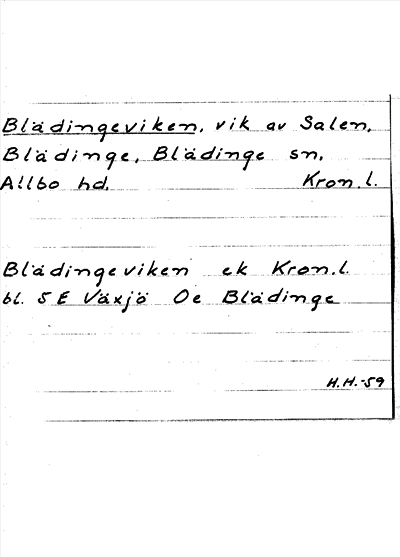 Blädingeviken, vik av Salen,
Blädinge, Blädinge sn,
Allbo hd. Kron.l.
Blädingeviken ek Kron.l.
bl. 5 E Växjö Oe Blädinge
H.H.-59